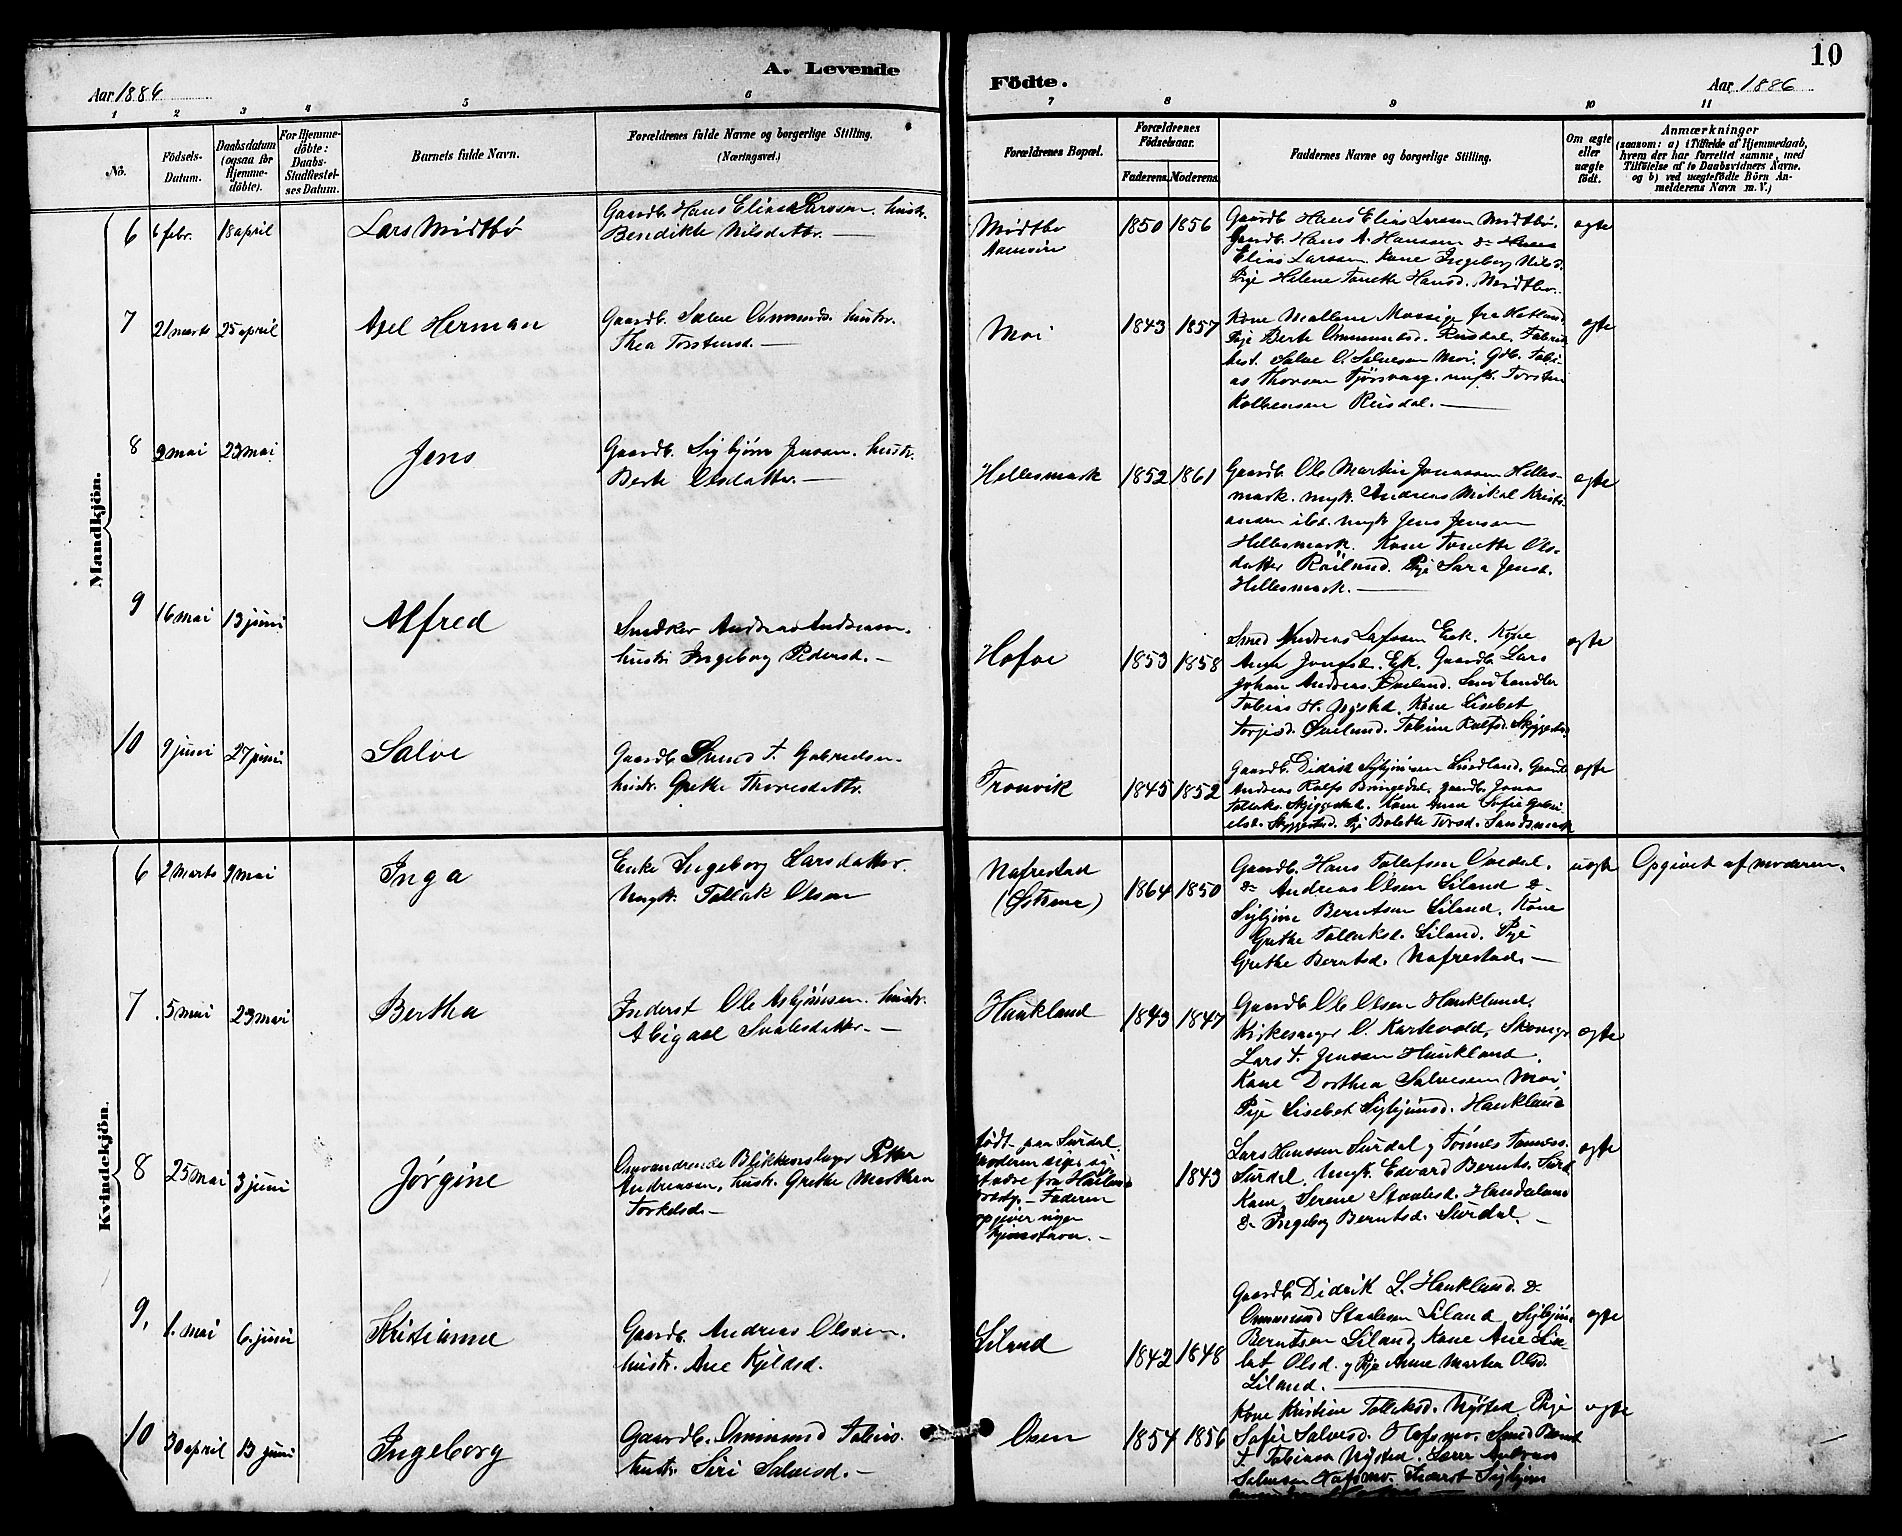 A. Levende
Födte.
10
Aar 1886
Aar 1886
1 2 3 4 5 6 7 8 9 10 11
No.
Födsels-Datum.
Daabsdatum (ogsaa för Hjemmedöbte).
For Hjemmedöbte: Daabs-Stadfæstelses Datum.
Barnets fulde Navn.
Forældrenes fulde Navne og borgerlige Stilling. (Næringsvei.)
Forældrenes Bopæl.
Forældrenes Födselsaar.
Faderens. Moderens.
Faddernes Navne og borgerlige Stilling.
Om ægte eller uægte født.
Anmærkninger
(saasom: a) i Tilfælde af Hjemmedaab,
hvem der har forrettet samme, med
Tilföielse af to Daabsvidners Navne.
og b) ved uægtefödte Börn Anmelderens Navn m. V.)
Mandkjön.
6 6 febr. 18 april Lars Midtbø
Gaardb. Hans Elias Larssen. hustr.
Bendikte Nilsdatter. —
Midtbø
Aamsön
1850 1856
Gaardb. Hans Elias Larssen Midtbø.
Gaardb. Hans A. Hanssen &
Elias Larssen. Kone Ingeborg Nilsd.
Pige Helene Tonette Hansd. Midtbø.
ægte
7 21 marts 25 april Axel Herman
Gaardb. Salve Ommunds. hustr.
Thea Torstensd. —
Moi
1843 1857
Kone Mallene Mossige fra Hetland
Pige Berte Ommundsd. Reisdal.
Salve O. Salvesen Moi. Gdb. Tobias
Thorsen Tjørsvaag. ungk. Torsten
Kolbensen Reisdal. —
ægte
8 2 mai 23 mai Jens
Gaardb. Sigbjørn Jensen. hustr.
Berte Olsdatter. —
Hellesmark
1852 1861
Gaardb. Ole Martin Jonassen Hellesmark.
ungk. Andreas Mikal Kristiansen
ibd. ungk Jens Jensen
Hellesmark. Kone Tonette Olsdatter
Røiland. Pige Sara Jensd.
Hellesmark. —
ægte
9 16 mai 13 juni Alfred
Snedker Andreas Andreasen.
hustr. Ingeborg Pedersd. —
Hofoe
1853 1858
Smed Andreas Eek. Kone
Anne Jonasd. Eek. Gaardb. Lars
Johan Andreas. Øveland. Landhandler
Tobias H. Nysted. Kone Lisebet
Torjesd. Øvelund. Tobine Rolfsd. Skjeggestad
ægte
10 9 juni 27 juni Salve
Gaardb. Svend T. Gabrielsen.
hustr. Grethe Thoresdatter.
Tronvik
1845 1852
Gaardb. Didrik Sigbjørnsen Lindland. Gaardb.
Andreas Rolfs Bringedal, gaardb. Jonas
Tolleks. Skjeggestad. Kone Anne Sofie Gabrielsd.
Skjeggestad. Pige Bolette Torsd. Sandsmark
ægte
Kvindekjön.
6 2 marts 9 mai Inga
Enke Ingeborg Larsdatter.
Ungk. Tollak Olsen
Nafrestad
(Østreme)
1864 1850
Gaardb. Hans Tollefsen Ovedal.
& Andreas Olsen Liland &
Sigbjørn Berntsen Liland. Kone
Grethe Tolleksd. Liland. Pige
Grethe Berntsd. Nafrestad. —
uægte
Opgivet af moderen.
7 5 mai 23 mai Bertha
Inderst Ole Asbjørnsen. hustr.
Abigael Svalesdatter. —
Haukland
1843 1847
Gaardb. Ole Olsen Haukland.
Kirkesanger O. Kartevold, Skomager
Lars T. Jensen Haukland.
Kone Dorthea Salvesen Moi,
Pige Lisebet Sigbjørnsd. Haukland
ægte
8 25 mai 3 juni Jørgine
Omvandrende Blikkenslager Petter
Andreasen, hustr. Grethe Marthea
Torkelsd. —
født paa Surdal.
Moderen siger sig
at være fra
— Faderen
opgiver ingen
hjemstavn. —
1843
Lars Hanssen Surdal og Tønnes Tønness.
Surdal, Ungk. Edvard Bernts. Surd.
Kone Serene Staalesd. Handeland
& Pige Ingeborg Berntsd. Surdal. —
ægte
9. 1. mai 6. juni Kristianne
Gaardb. Andreas Olssen.
hustr. Ane Kjeldsd.
Liland
1842 1848
Gaardb. Didrik L. Haukland. &
Ommund Staalesen Liland, Sigbjørn
Berntsen Liland, Kone Ane Lisebet
Olsd. og Pige Anne Martea Olsd.
Liland. —
ægte
10 30 april 13 juni Ingeborg
Gaardb. Ommund Tobias.
hustr. Siri Salvesd. —
Osen
1854 1856
Kone Kristine Tolleksd. Nysted Pige
Sofie Salvesd. Hofsmo. Smed Bernt
T. Tobiassen Nysted. Lærer Andreas
Salvesen Hofsmo. Inderst Sigbjørn
ægte